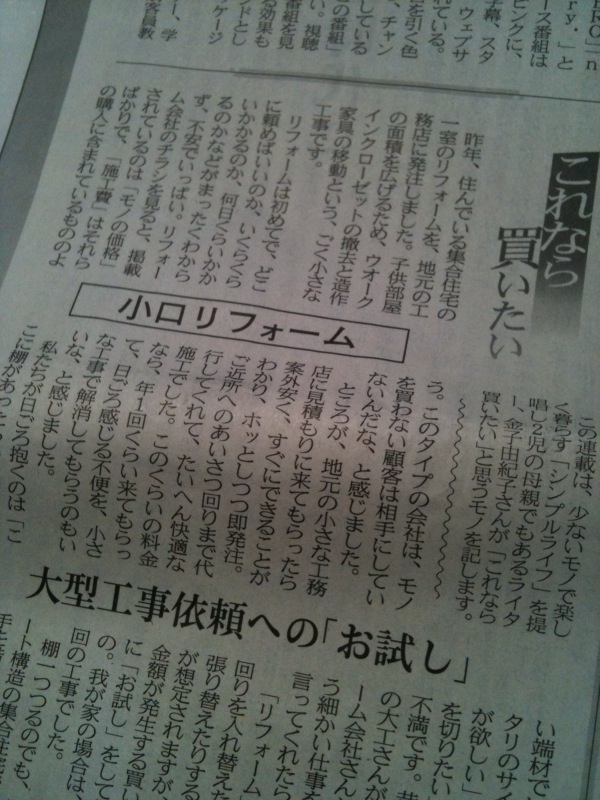 ERO」n
ry.」と
ース番組は
ピンクに、
字幕、スタ
、ウェブサ
れている。
を引く色
、チャン
している
の番組」
い。視聴
番組を見
る効果も
ンドとし
ケージ
ー、学
客員教
これなら
買いたい
この連載は、少ないモノで楽し
く暮らす「シンプルライフ」を提
唱し2児の母親でもあるライタ
ー、金子由紀子さんが「これなら
買いたい」と思うモノを記します。
小口リフォーム
昨年、住んでいる集合住宅の
一室のリフォームを、地元の工
務店に発注しました。子供部屋
の面積を広げるため、ウオーク
インクローゼットの撤去と造作
家具の移動という、ごく小さな
工事です。
リフォームは初めてで、どこ
に頼めばいいのか、いくらくら
いかかるのか、何日くらいかか
るのかなどがまったくわから
ず、不安でいっぱい。リフォー
ム会社のチラシを見ると、掲載
されているのは「モノの価格」
ばかりで、「施工費」はそれら
の購入に含まれているもののよ
う。このタイプの会社は、モノ
を買わない顧客は相手にしてい
ないんだな、と感じました。
ところが、地元の小さな工務
店に見積もりに来てもらったら
案外安く、すぐにできることが
わかり、ホッとしつつ即発注。
ご近所へのあいさつ回りまで代
行してくれて、たいへん快適な
施工でした。このくらいの料金
なら、年1回くらい来てもらっ
て、日ごろ感じる不便を、小さ
な工事で解消してもらうのもい
いな、と感じました。
私たちが日ごろ抱くのは「こ
こに棚があった
大型工事依頼への「お試し」
い端材で
タリのサイ
が欲しい」
を切りたい
不満です。昔
の大工さんが
ーム会社さん
う細かい仕事を
言ってくれたら
「リフォーム」
回りを入れ替えた
張り替えたりする
が想定されますが、
金額が発生する買い
に「お試し」をして
の。我が家の場合は、
回の工事でした。
棚一つつるのでも、
ート構造の集合住宅